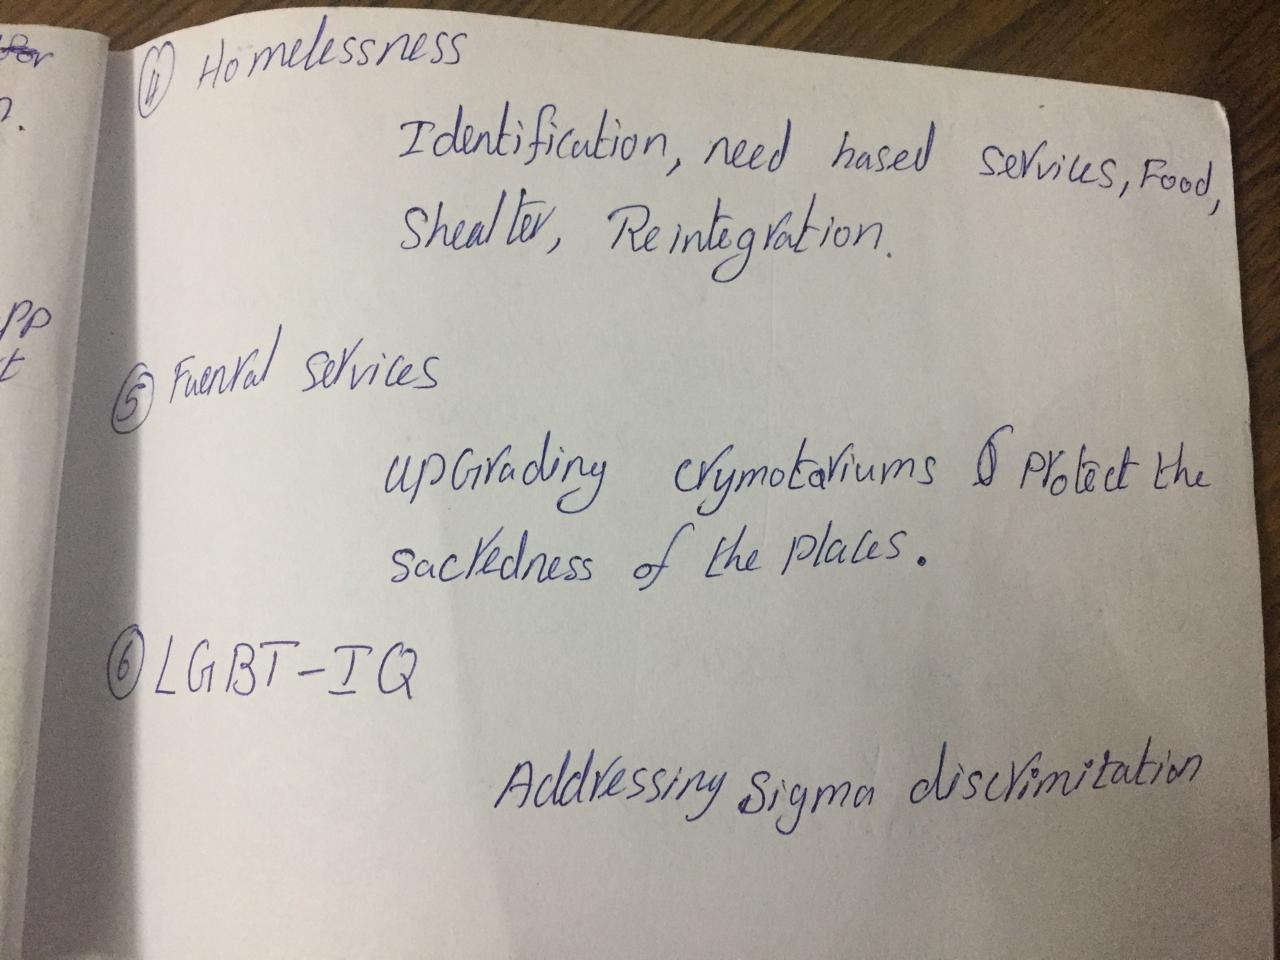 ④ Homelessness
Identification, need based services, Food,
Shealter, Reintegration.
⑤ Fuenral services
upGrading crymotoriums & Protect the
sacredness of the places.
⑥ LGBT-IQ
Addressing Sigma discrimitation